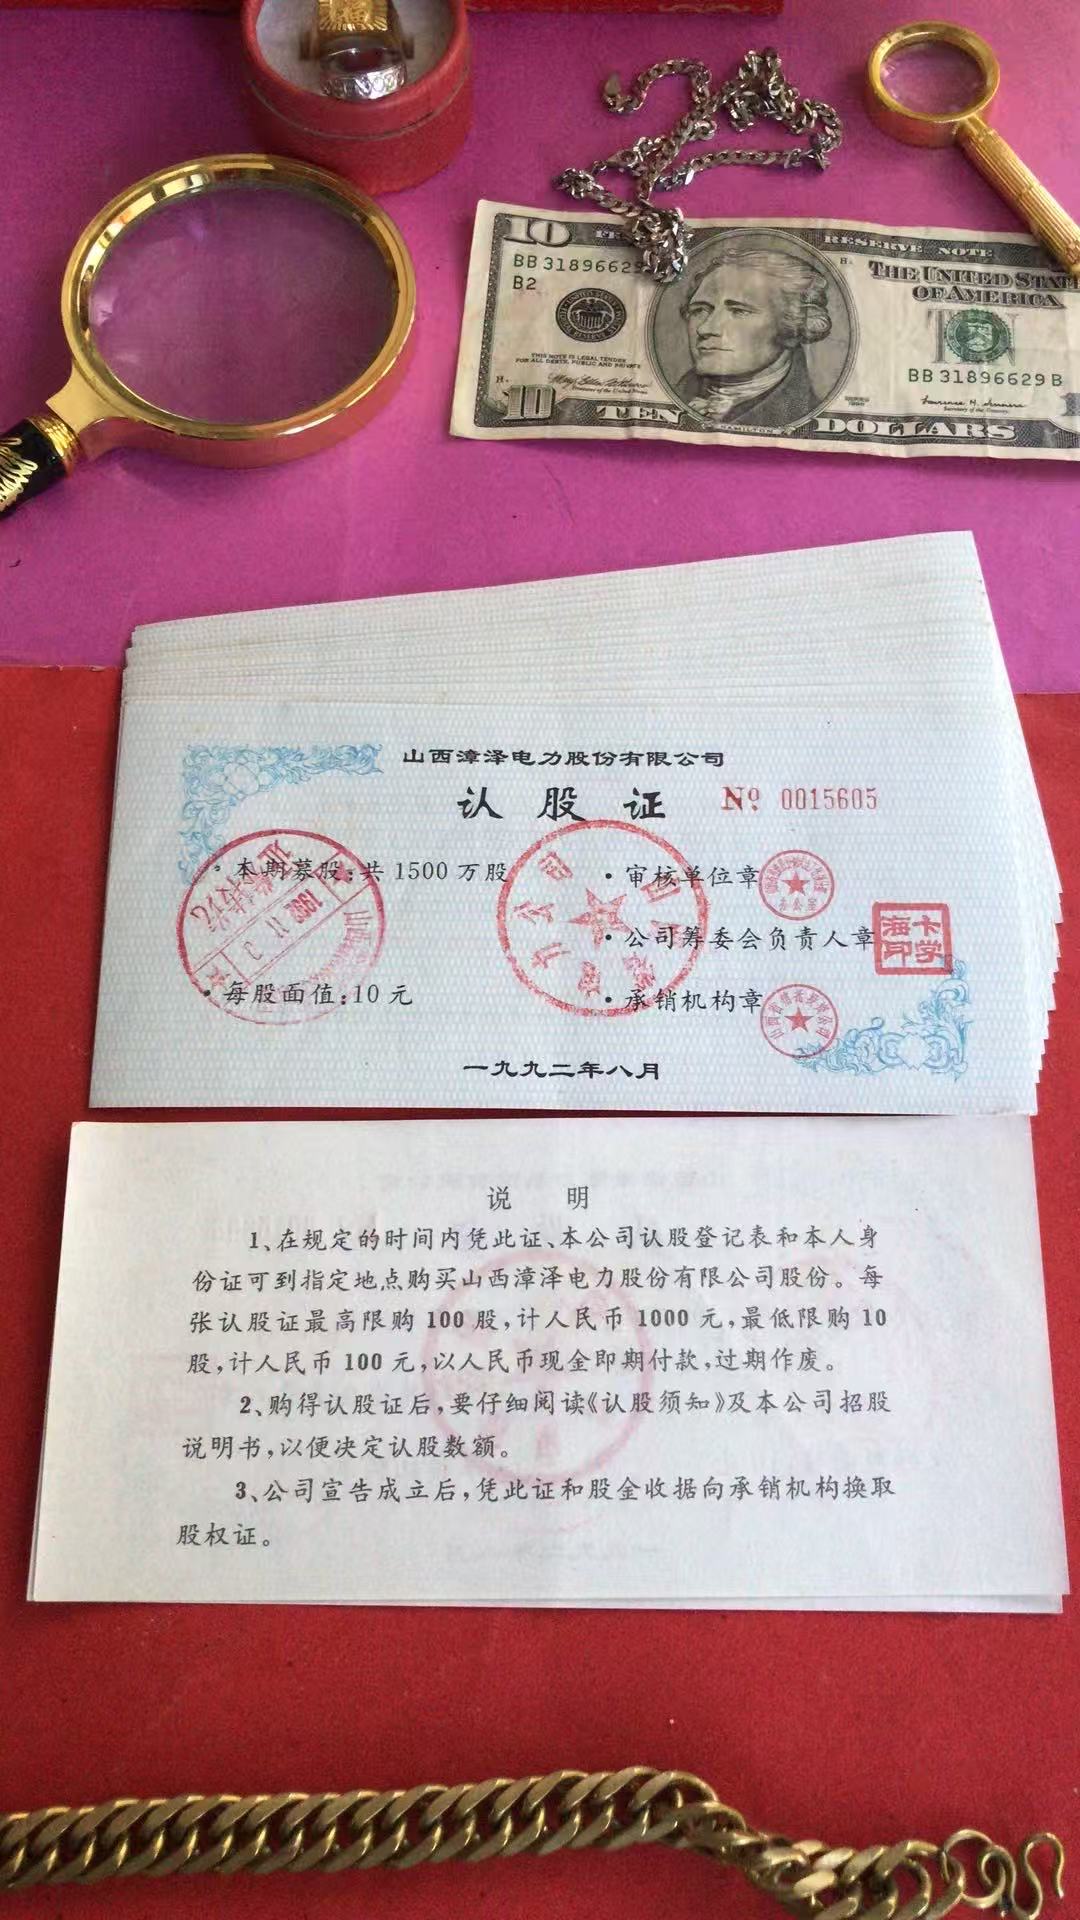 10
RESERVE NOTE
BB 31896629
THE UNITED STATE
OF AMERICA
B2
THIS NOTE IS LEGAL TENDER
FOR ALL DEBTS, PUBLIC AND PRIVATE
BB 31896629 B
10
TEN
HAMILTON
DOLLARS
山西漳泽电力股份有限公司
认股证
No 0015605
·本期募股:共1500万股
·审核单位章
办公室
·公司筹委会负责人章
1992 11 3
·每股面值:10元
·承销机构章
一九九二年八月
说 明
1、在规定的时间内凭此证、本公司认股登记表和本人身
份证可到指定地点购买山西漳泽电力股份有限公司股份。每
张认股证最高限购100股,计人民币1000元,最低限购10
股,计人民币100元,以人民币现金即期付款,过期作废。
2、购得认股证后,要仔细阅读《认股须知》及本公司招股
说明书,以便决定认股数额。
3、公司宣告成立后,凭此证和股金收据向承销机构换取
股权证。